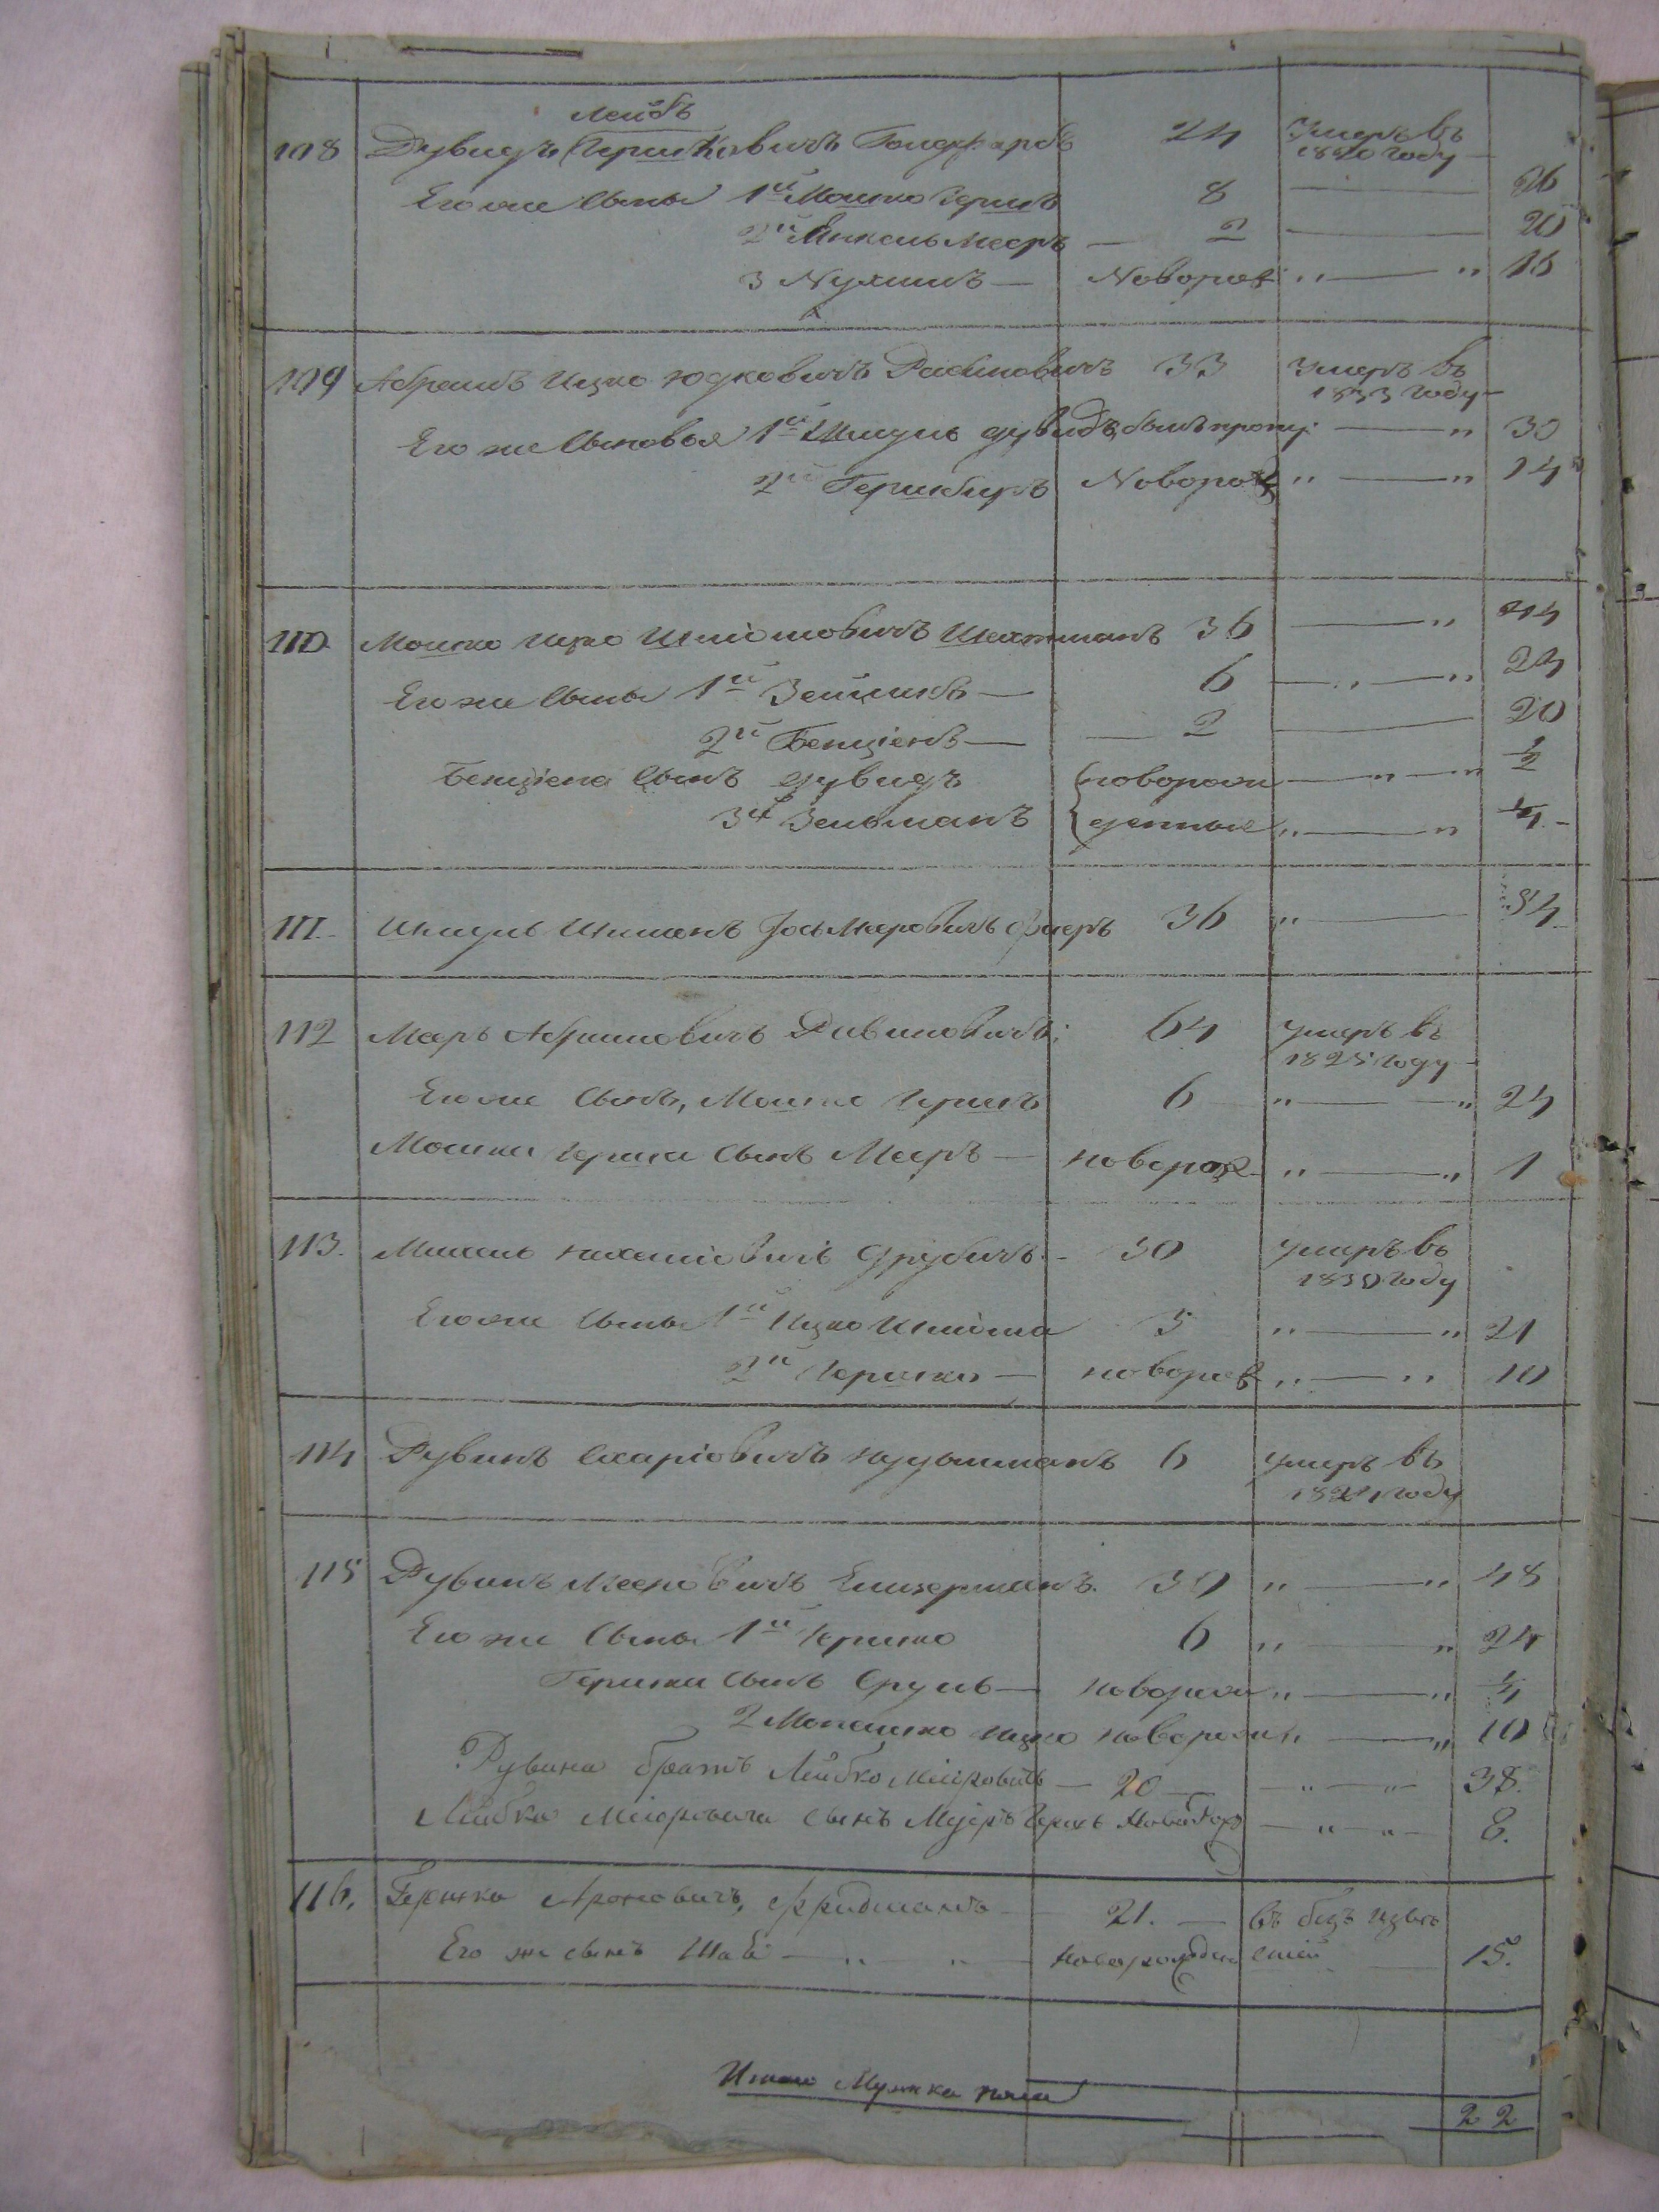 Лейбъ
108 Дувидъ Гершковичъ Гольдфарбъ 24 Умеръ въ
1840 году
Его же Сыны 1й Мошко Гершъ 8 26
2й Янкель Мееръ — 2 20
3 Нухимъ — Новорож „ — „ 15
109 Абрамъ Ицко Юдковичъ Рабиновичъ 33 Умеръ въ
1833 году
Его же Сыновья 1й Шмуль Дувидъ, былъ пропу: — „ 30
2й Гершберъ Новорож „ — „ 14
110. Мошко Ицко Шліомовичъ Шехтманъ 36 — „
Его же Сыны 1й Зейликъ — 6 — „ — „ 24
2й Бенціенъ — — 2 20
Бенціена Сынъ Дувидъ новорож — „ — „ ½
3й Зельманъ денные „ — „
111. Шмуль Шимонъ Іосъ Меровичъ 36 „ — 54
112 Меръ Абрамовичъ Рабиновичъ: 64 умеръ въ
1825 году
Его же Сынъ, Мошко Гершъ 6 „ — „ 24
Мошки Герша Сынъ Мееръ — новорож „ — „ 1
113. Михель Нахміовичъ 30 умеръ въ
1830 году
Его же Сыны 1й Ицко Шліома 3 „ — „ 21
2й Гершко — новорож „ — „ 10
114 Рувинъ 6 умеръ въ
году
115 Рувинъ Мееровичъ 30 „ — „ 48
Его же Сыны 1й Гершко 6 „ — „ 24
Гершки Сынъ Сруль — новорож „ — „ ¼
2 Ицко новорож „ — „ 10
Рувина братъ Лейбко Меіровичъ — 20 — — „ — „ — 38.
Лейбка Меіровича Сынъ Меіръ Гершъ — „ „ — 8.
116. Гершко Ароновичъ, Фридманъ — 21. — въ безъ извѣ
Его же сынъ — „ „ — Новорожден стной 15.
Итого Мужска пола
22